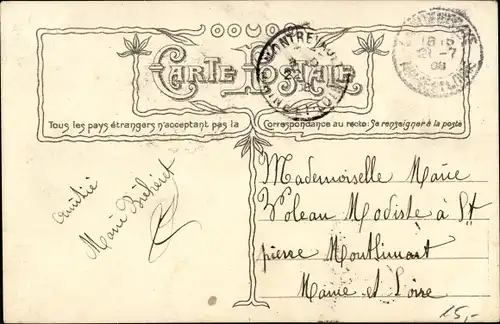 CARTE POSTALE
Tous les pays étrangers n'acceptant pas la Correspondance au recto: Se renseigner à la poste
18 15
21 -7
08
MAINE-ET-LOIRE
Amitié
Marie
Mademoiselle Marie
Voleau Modiste à St
pierre Montlimart
Maine et Loire
15,-